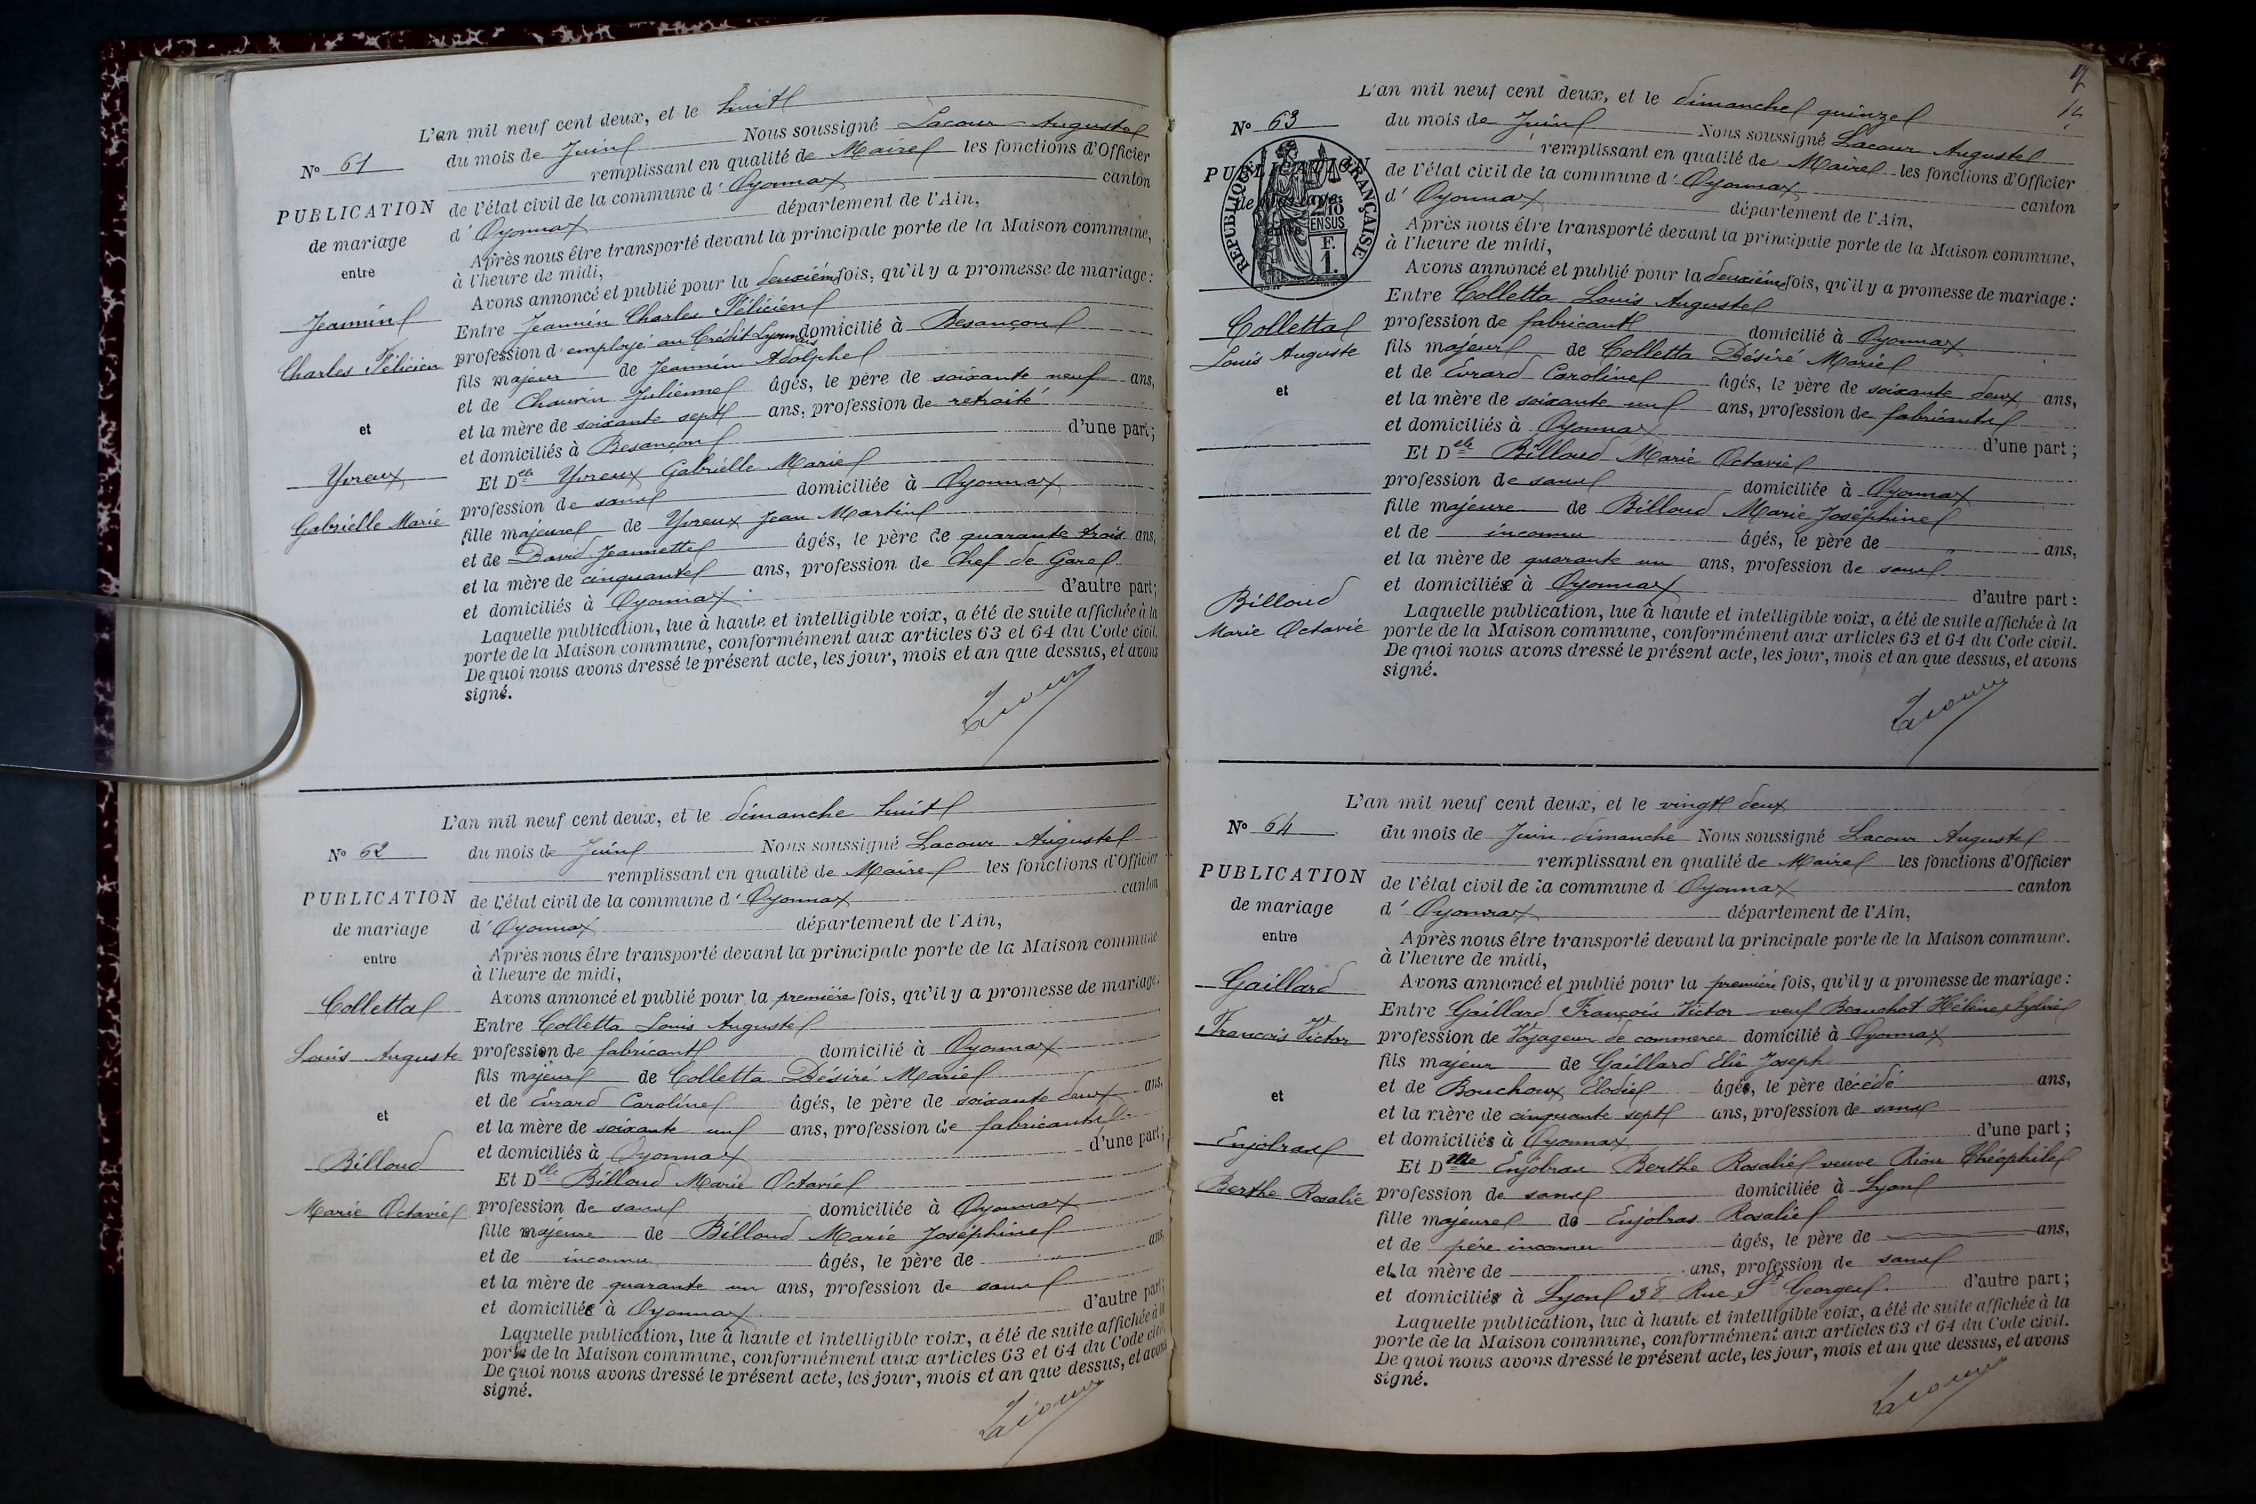 L'an mil neuf cent deux, et le huit
N° 61
du mois de Juin Nous soussigné Lacour Auguste
remplissant en qualité de Maire les fonctions d'Officier
PUBLICATION
de mariage
entre
de l'état civil de la commune d'Oyonnax canton
d'Oyonnax département de l'Ain,
Après nous être transporté devant la principale porte de la Maison commune,
à l'heure de midi,
Avons annoncé et publié pour la deuxième fois, qu'il y a promesse de mariage :
Jeannin
Charles Félicien
et
Yvreux
Gabrielle Marie
Entre Jeannin Charles Félicien
profession d'employé au Crédit Lyonnais domicilié à Besançon
fils majeur de Jeannin Adolphe
et de Chauvin Julienne âgés, le père de soixante neuf ans,
et la mère de soixante sept ans, profession de retraité
et domiciliés à Besançon d'une part ;
Et Delle Yvreux Gabrielle Marie
profession de sans domiciliée à Oyonnax
fille majeure de Yvreux Jean Martin
et de David Jeannette âgés, le père de quarante trois ans,
et la mère de cinquante ans, profession de Chef de Gare
et domiciliés à Oyonnax d'autre part ;
Laquelle publication, lue à haute et intelligible voix, a été de suite affichée à la
porte de la Maison commune, conformément aux articles 63 et 64 du Code civil.
De quoi nous avons dressé le présent acte, les jour, mois et an que dessus, et avons
signé.
Lacour
L'an mil neuf cent deux, et le dimanche huit
N° 62
du mois de Juin Nous soussigné Lacour Auguste
remplissant en qualité de Maire les fonctions d'Officier
PUBLICATION
de mariage
entre
de l'état civil de la commune d'Oyonnax canton
d'Oyonnax département de l'Ain,
Après nous être transporté devant la principale porte de la Maison commune
à l'heure de midi,
Avons annoncé et publié pour la première fois, qu'il y a promesse de mariage.
Colletta
Louis Auguste
et
Billoud
Marie Octavie
Entre Colletta Louis Auguste
profession de fabricant domicilié à Oyonnax
fils majeur de Colletta Désiré Marie
et de Evrard Caroline âgés, le père de soixante deux ans,
et la mère de soixante un ans, profession de fabricants
et domiciliés à Oyonnax d'une part ;
Et Delle Billoud Marie Octavie
profession de sans domiciliée à Oyonnax
fille majeure de Billoud Marie Joséphine
et de inconnu âgés, le père de ans,
et la mère de quarante un ans, profession de sans
et domiciliée à Oyonnax d'autre part ;
Laquelle publication, lue à haute et intelligible voix, a été de suite affichée à la
porte de la Maison commune, conformément aux articles 63 et 64 du Code civil.
De quoi nous avons dressé le présent acte, les jour, mois et an que dessus, et avons
signé.
Lacour
L'an mil neuf cent deux, et le dimanche quinze
N° 63
du mois de Juin Nous soussigné Lacour Auguste
remplissant en qualité de Maire les fonctions d'Officier
PUBLICATION
de mariage
RÉPUBLIQUE FRANÇAISE
2/10
EN SUS
F.
1.
de l'état civil de la commune d'Oyonnax canton
d'Oyonnax département de l'Ain,
Après nous être transporté devant la principale porte de la Maison commune,
à l'heure de midi,
Avons annoncé et publié pour la deuxième fois, qu'il y a promesse de mariage :
Colletta
Louis Auguste
et
Billoud
Marie Octavie
Entre Colletta Louis Auguste
profession de fabricant domicilié à Oyonnax
fils majeur de Colletta Désiré Marie
et de Evrard Caroline âgés, le père de soixante deux ans,
et la mère de soixante un ans, profession de fabricants
et domiciliés à Oyonnax d'une part ;
Et Delle Billoud Marie Octavie
profession de sans domiciliée à Oyonnax
fille majeure de Billoud Marie Joséphine
et de inconnu âgés, le père de ans,
et la mère de quarante un ans, profession de sans
et domiciliée à Oyonnax d'autre part :
Laquelle publication, lue à haute et intelligible voix, a été de suite affichée à la
porte de la Maison commune, conformément aux articles 63 et 64 du Code civil.
De quoi nous avons dressé le présent acte, les jour, mois et an que dessus, et avons
signé.
Lacour
L'an mil neuf cent deux, et le vingt deux
N° 64
du mois de Juin dimanche Nous soussigné Lacour Auguste
remplissant en qualité de Maire les fonctions d'Officier
PUBLICATION
de mariage
entre
de l'état civil de la commune d'Oyonnax canton
d'Oyonnax département de l'Ain,
Après nous être transporté devant la principale porte de la Maison commune.
à l'heure de midi,
Avons annoncé et publié pour la première fois, qu'il y a promesse de mariage :
Gaillard
François Victor
et
Enjobras
Berthe Rosalie
Entre Gaillard François Victor veuf Beauchot Hélène Sylvie
profession de Voyageur de commerce domicilié à Oyonnax
fils majeur de Gaillard Elie Joseph
et de Bouchoux Elodie âgés, le père décédé ans,
et la mère de cinquante sept ans, profession de sans
et domiciliés à Oyonnax d'une part ;
Et Dme Enjobras Berthe Rosalie veuve Riou Théophile
profession de sans domiciliée à Lyon
fille majeure de Enjobras Rosalie
et de père inconnu âgés, le père de ans,
et la mère de ans, profession de sans
et domiciliés à Lyon 38 Rue St Georges d'autre part ;
Laquelle publication, lue à haute et intelligible voix, a été de suite affichée à la
porte de la Maison commune, conformément aux articles 63 et 64 du Code civil.
De quoi nous avons dressé le présent acte, les jour, mois et an que dessus, et avons
signé.
Lacour